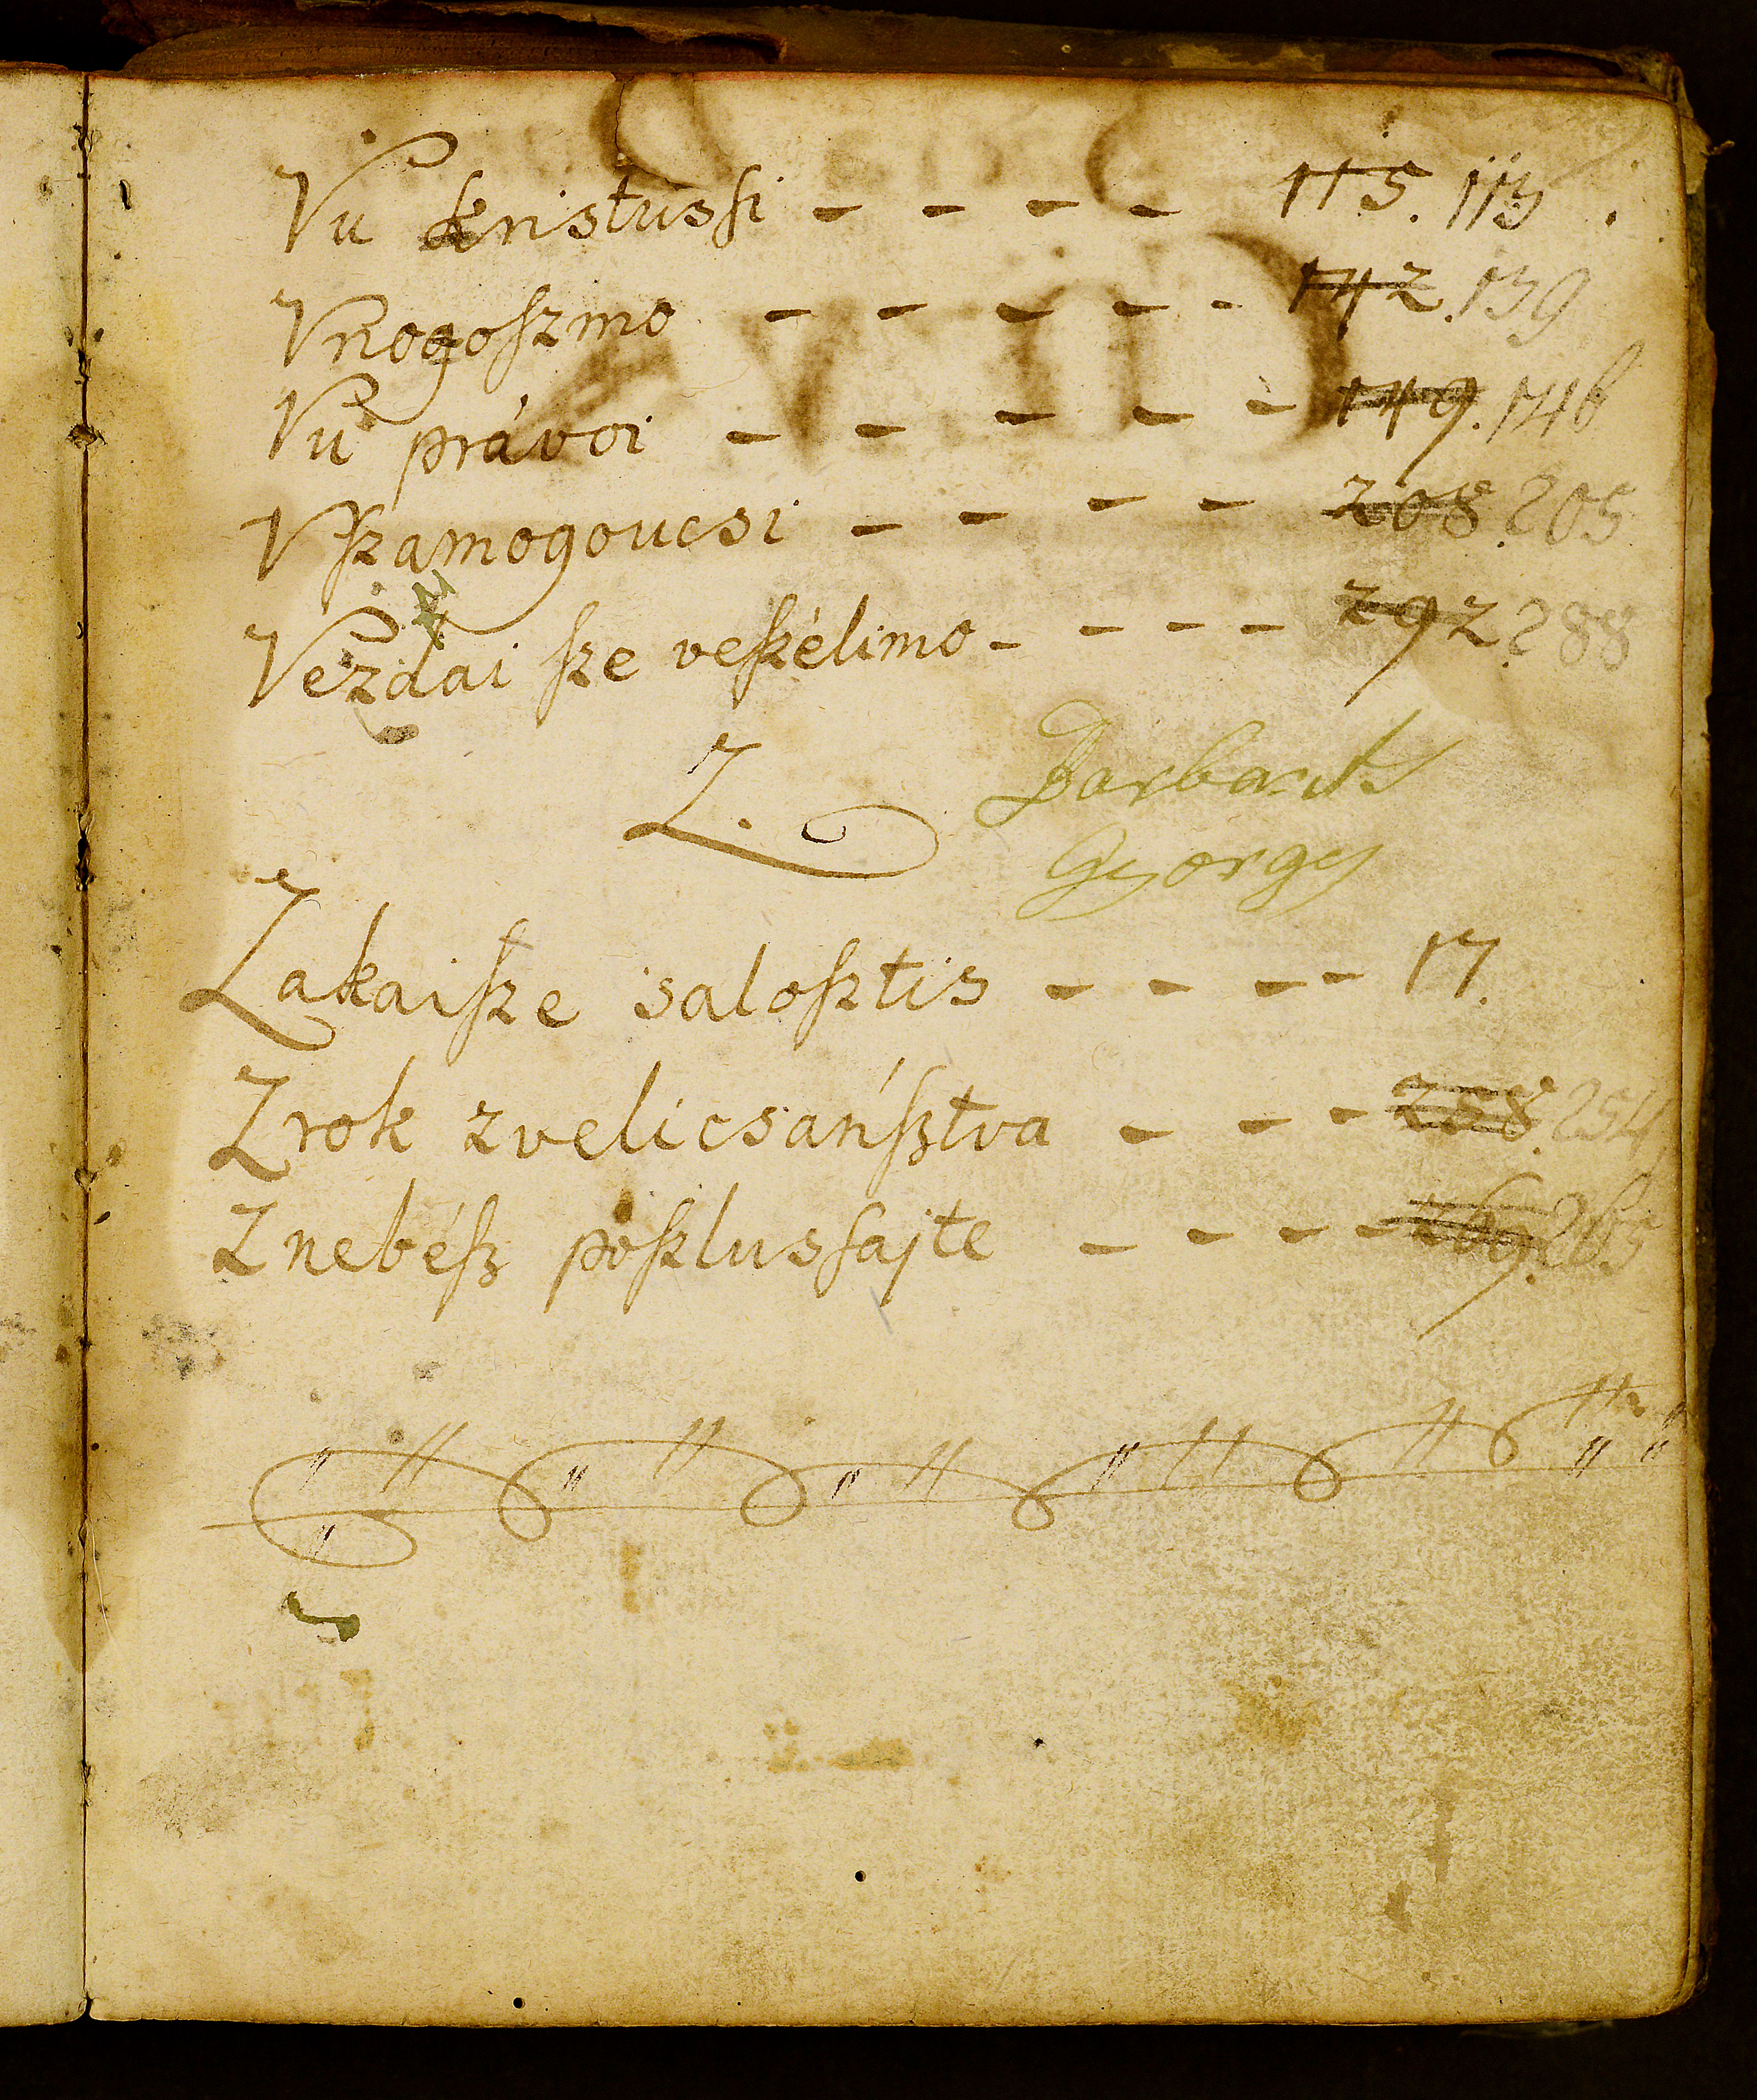 Vu kristusſi – – – – 115. 113
Vnogoſzmo – – – – – 142. 139
Vu právoi – – – – – 149. 146
Vſzamogoucsi – – – – 208. 205
Vezdai ſze veſzélimo – – – – 292. 288
Z.
Barbarits
György
Zakaiſze saloſztis – – – – 17.
Zrok zvelicsanſztva – – – 258. 254
Znebéſz poſzlusſajte – – – – 269. 265